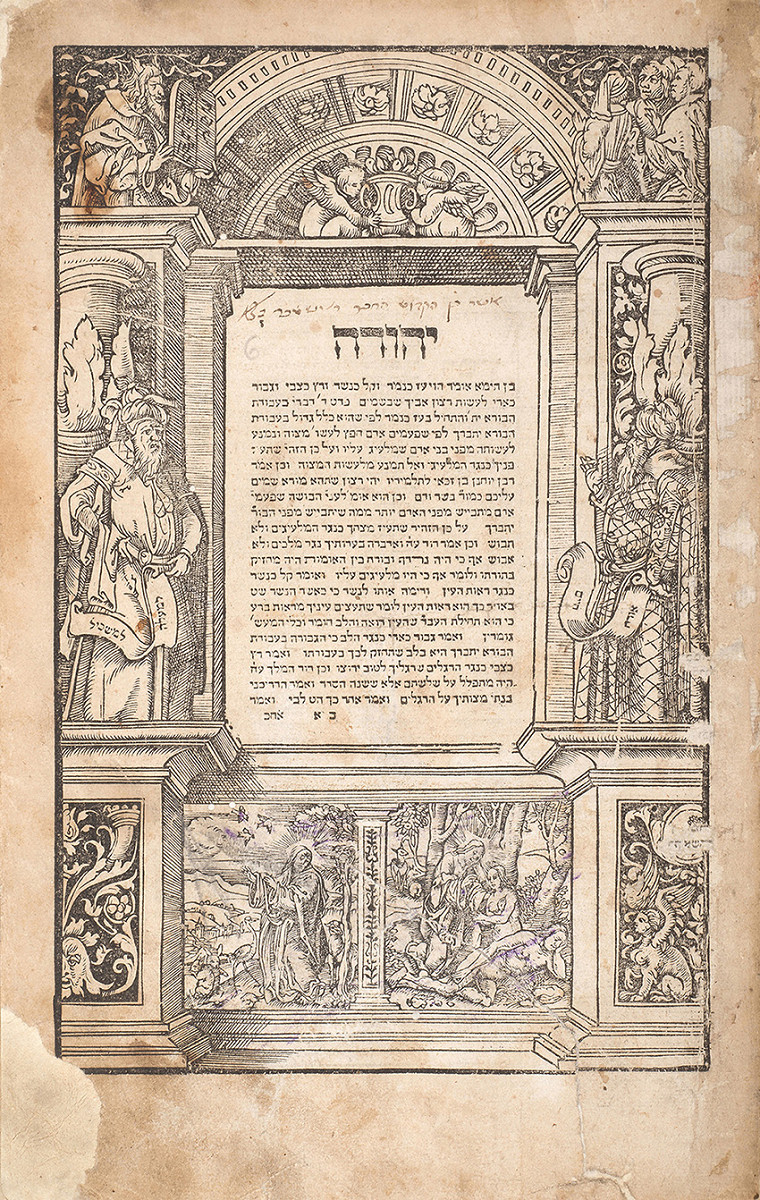 אשר בן
יהודה
בן תימא אומר הוי עז כנמר וקל כנשר ורץ כצבי וגבור
כארי לעשות רצון אביך שבשמים פרט ד' דברי' בעבודת
הבורא ית' והתחיל בעז כנמר לפי שהוא כלל גדול בעבודת
הבורא יתברך לפי שפעמים אדם חפץ לעשו' מצוה ונמנע
לעשותה מפני בני אדם שמלעיגי' עליו ועל כן הזהי' שתעיז
פניך כנגד המלעיגי' ואל תמנע מלעשות המצוה וכן אמר
רבן יוחנן בן זכאי לתלמידיו יהי רצון שתהא מורא שמים
עליכם כמור' בשר ודם וכן הוא אומ' לעני' הבושה שפעמי'
אדם מתבייש מפני האדם יותר ממה שיתבייש מפני הבור'
יתברך על כן הזהיר שתעיז מצחך כנגד המלעיגים ולא
תבוש וכן אמר דוד ע"ה ואדברה בעדותיך נגד מלכים ולא
אבוש אף כי היה נרדף ובורח בין האומות היה מחזיק
בתורתו ולומד אף כי היו מלעיגים עליו ואומר קל כנשר
כנגד ראות העין ודימה אותו לנשר כי כאשר הנשר שט
באויר כך הוא ראות העין לומר שתעצים עיניך מראות ברע
כי הוא תחילת העבר' שהעין רואה והלב חומד וכלי המעש'
גומרין ואומר גבור כארי כנגד הלב כי הגבורה בעבודת
הבורא יתברך היא בלב שתחזק לבך בעבודתו ואמר רץ
כצבי כנגד הרגלים שרגליך לטוב ירוצו וכן דוד המלך ע"ה
היה מתפלל על שלשתם אלא ששנה הסדר ואמר הדריכני
בנתי' מצותיך על הרגלים ואמר אחר כך הט לבי ואמר
ב א אחכ
למשכיל
אורח